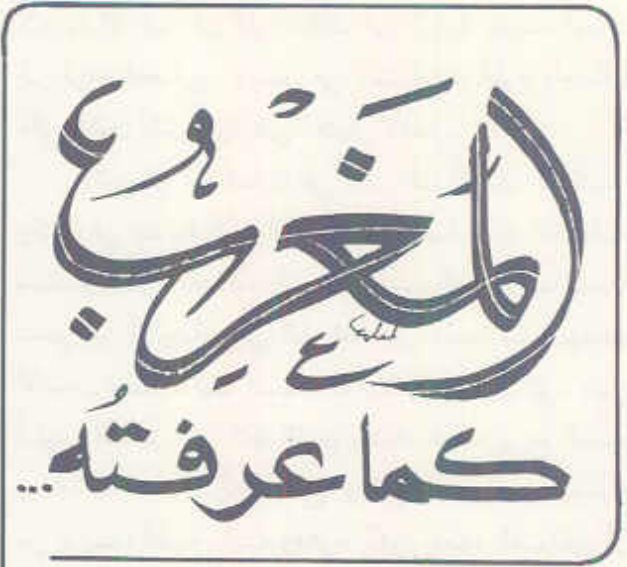 المغرب
كما عرفتُه...